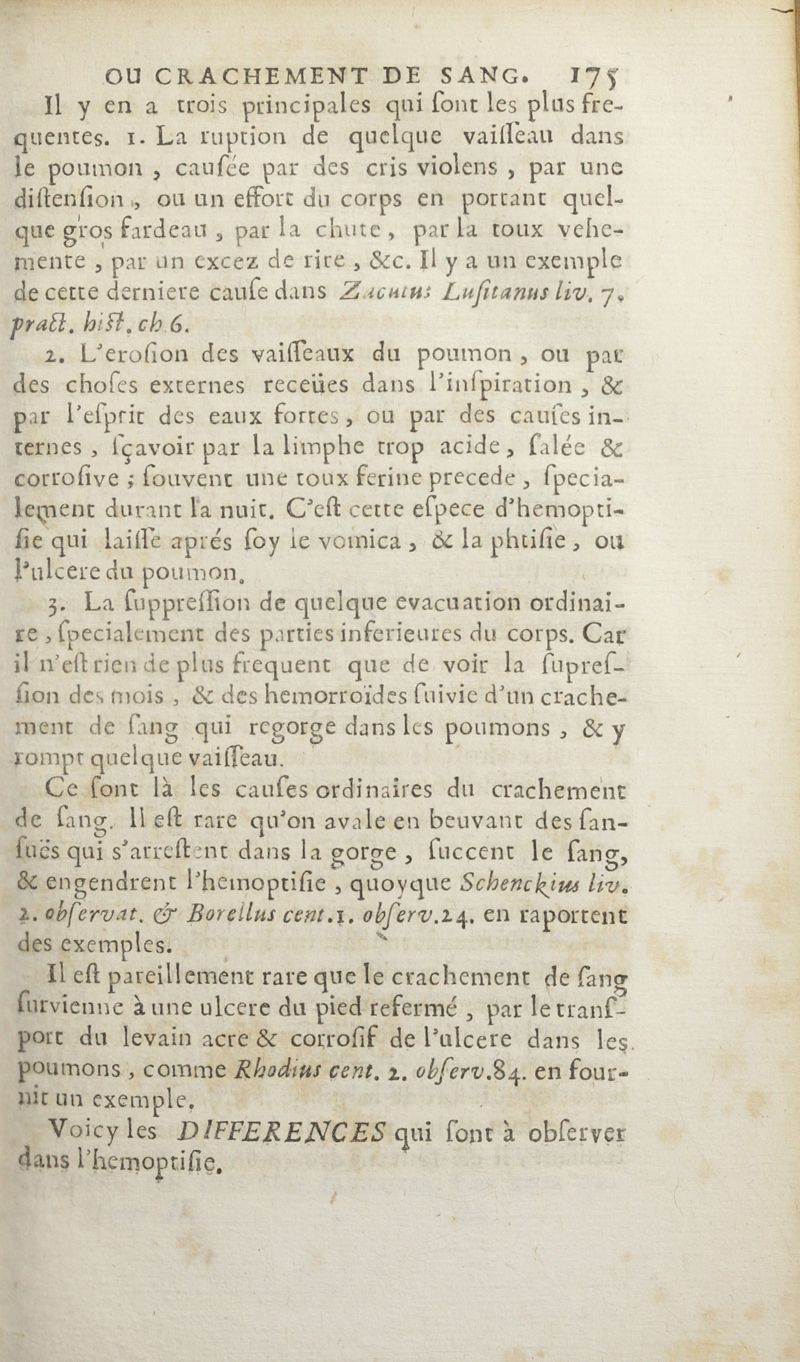 OU CRACHEMENT DE SANG. 175
Il y en a trois principales qui ſont les plus fre-
quentes. 1. La ruption de quelque vaiſſeau dans
le poumon , cauſée par des cris violens , par une
diſtenſion , ou un effort du corps en portant quel-
que gros fardeau , par la chute , par la toux vehe-
mente , par un excez de rire , &c. Il y a un exemple
de cette derniere cauſe dans Zacutus Luſitanus liv. 7.
pract. hiſt. ch 6.
2. L'eroſion des vaiſſeaux du poumon , ou par
des choſes externes receües dans l'inſpiration , &
par l'eſprit des eaux fortes , ou par des cauſes in-
ternes , ſçavoir par la limphe trop acide , ſalée &
corroſive ; ſouvent une toux ferine precede , ſpecia-
lement durant la nuit. C'eſt cette eſpece d'hemopti-
ſie qui laiſſe aprés ſoy le vomica , & la phtiſie , ou
l'ulcere du poumon.
3. La ſuppreſſion de quelque evacuation ordinai-
re , ſpecialement des parties inferieures du corps. Car
il n'eſt rien de plus frequent que de voir la ſupreſ-
ſion des mois , & des hemorroïdes ſuivie d'un crache-
ment de ſang qui regorge dans les poumons , & y
rompt quelque vaiſſeau.
Ce ſont là les cauſes ordinaires du crachement
de ſang. Il eſt rare qu'on avale en beuvant des ſan-
ſuës qui s'arreſtent dans la gorge , ſuccent le ſang,
& engendrent l'hemoptiſie , quoyque Schenckius liv.
2. obſervat. & Borellus cent.1. obſerv.24. en raportent
des exemples.
Il eſt pareillement rare que le crachement de ſang
ſurvienne à une ulcere du pied refermé , par le tranſ-
port du levain acre & corroſif de l'ulcere dans les
poumons , comme Rhodius cent. 2. obſerv.84. en four-
nit un exemple.
Voicy les DIFFERENCES qui ſont à obſerver
dans l'hemoptiſie.